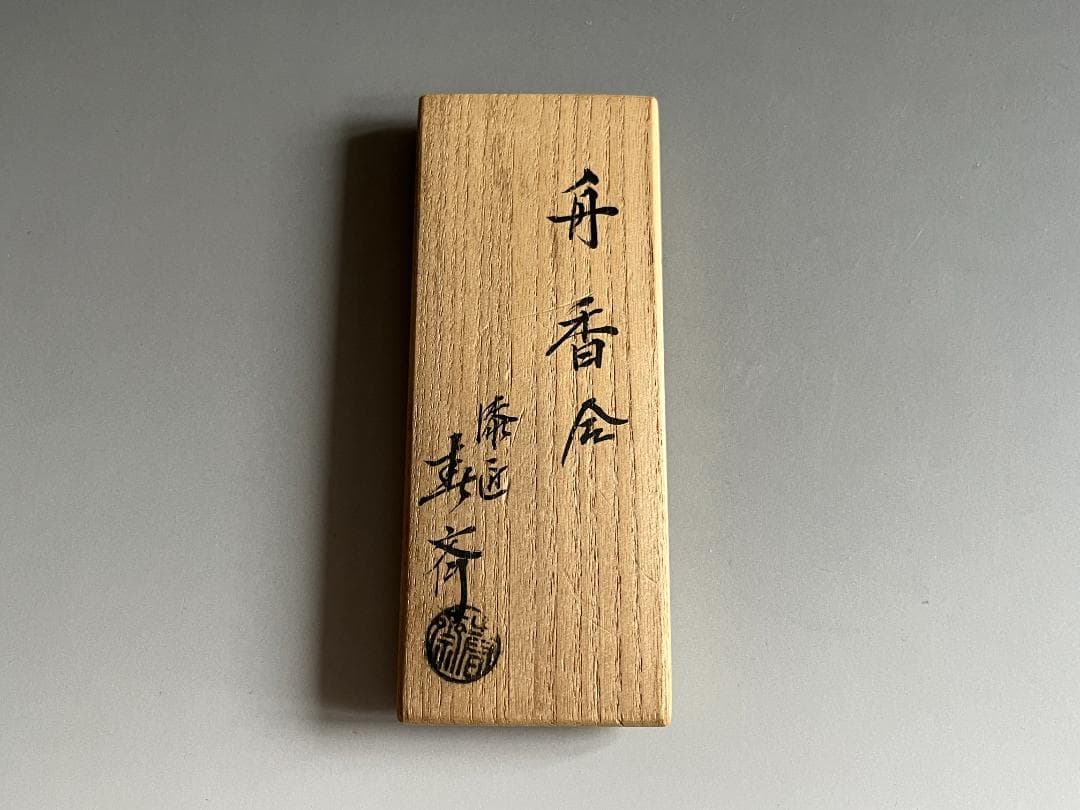 舟香合
漆匠
斎